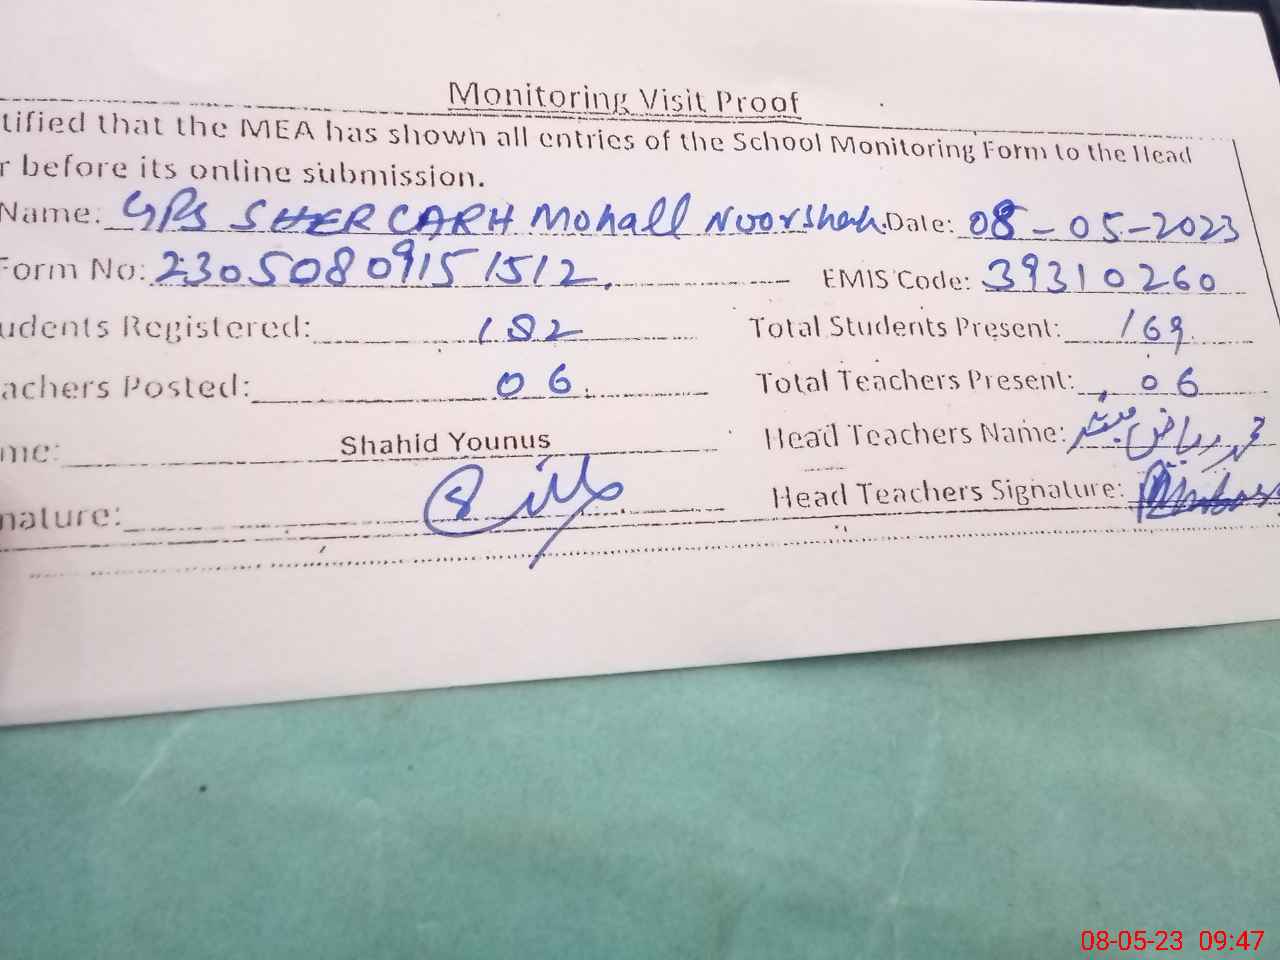 Monitoring Visit Proof
tified that the MEA has shown all entries of the School Monitoring Form to the Head
r before its online submission.
Name: GPS SHER GARH Mohall Noorshah Date: 08-05-2023
Form No: 2305080915 1512 EMIS Code: 39310260
udents Registered: 182 Total Students Present: 169
achers Posted: 06 Total Teachers Present: 06
me: Shahid Younus Head Teachers Name: محمد ریاض مبشر
nature: Head Teachers Signature:
08-05-23 09:47